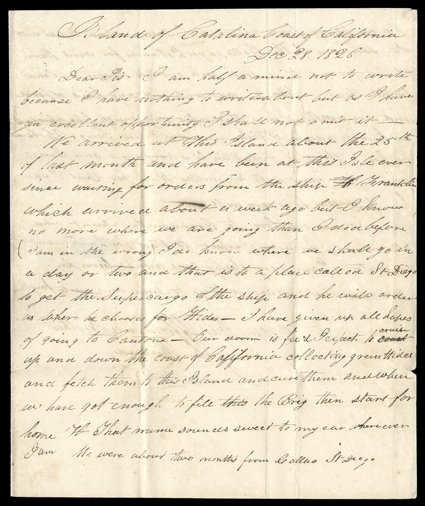 Island of Catalina Coast of California
Dec 28 1826
Dear Sis - I am half a mind not to write
because I have nothing to write about but as I have
an excellent opportunity I shall not omit it -
We arrived at this Island about the 25th
of last month and have been at this Isle ever
since waiting for orders from the ship Franklin
which arrived about a week ago but I know
no more where we are going than I did before
(I am in the wrong) I do know where we shall go in
a day or two and that is to a place called St Diego
to get the Supercargo of the ship and he will order
us where he chooses for Hides - I have given up all hopes
of going to Canton - Our doom is fix'd I expect to cruise
up and down the coast of California collecting green Hides
and fetch them to this Island and cure them and when
we have got enough to fill the Brig then start for
home That name sounds sweet to my ear where ever
I am We were about two months from Callao St Diego